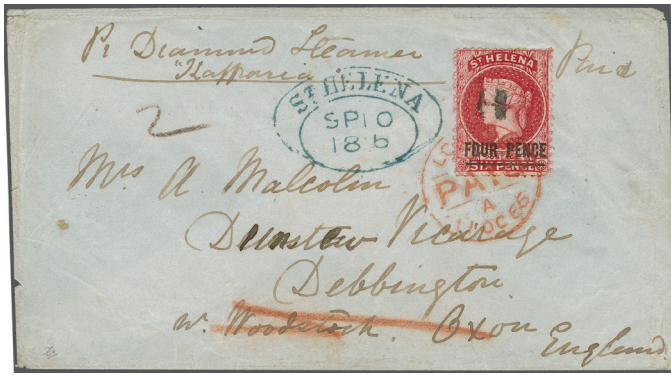 Pr Diamond Steamer
"Kaffraria
Paid
ST HELENA
SP10
186
ST HELENA
FOUR PENCE
SIXPENCE
2
PAID
A
OC 65
Mrs A. Malcolm
Vicarage
Debbington
W. Woodstock. Oxon
England.